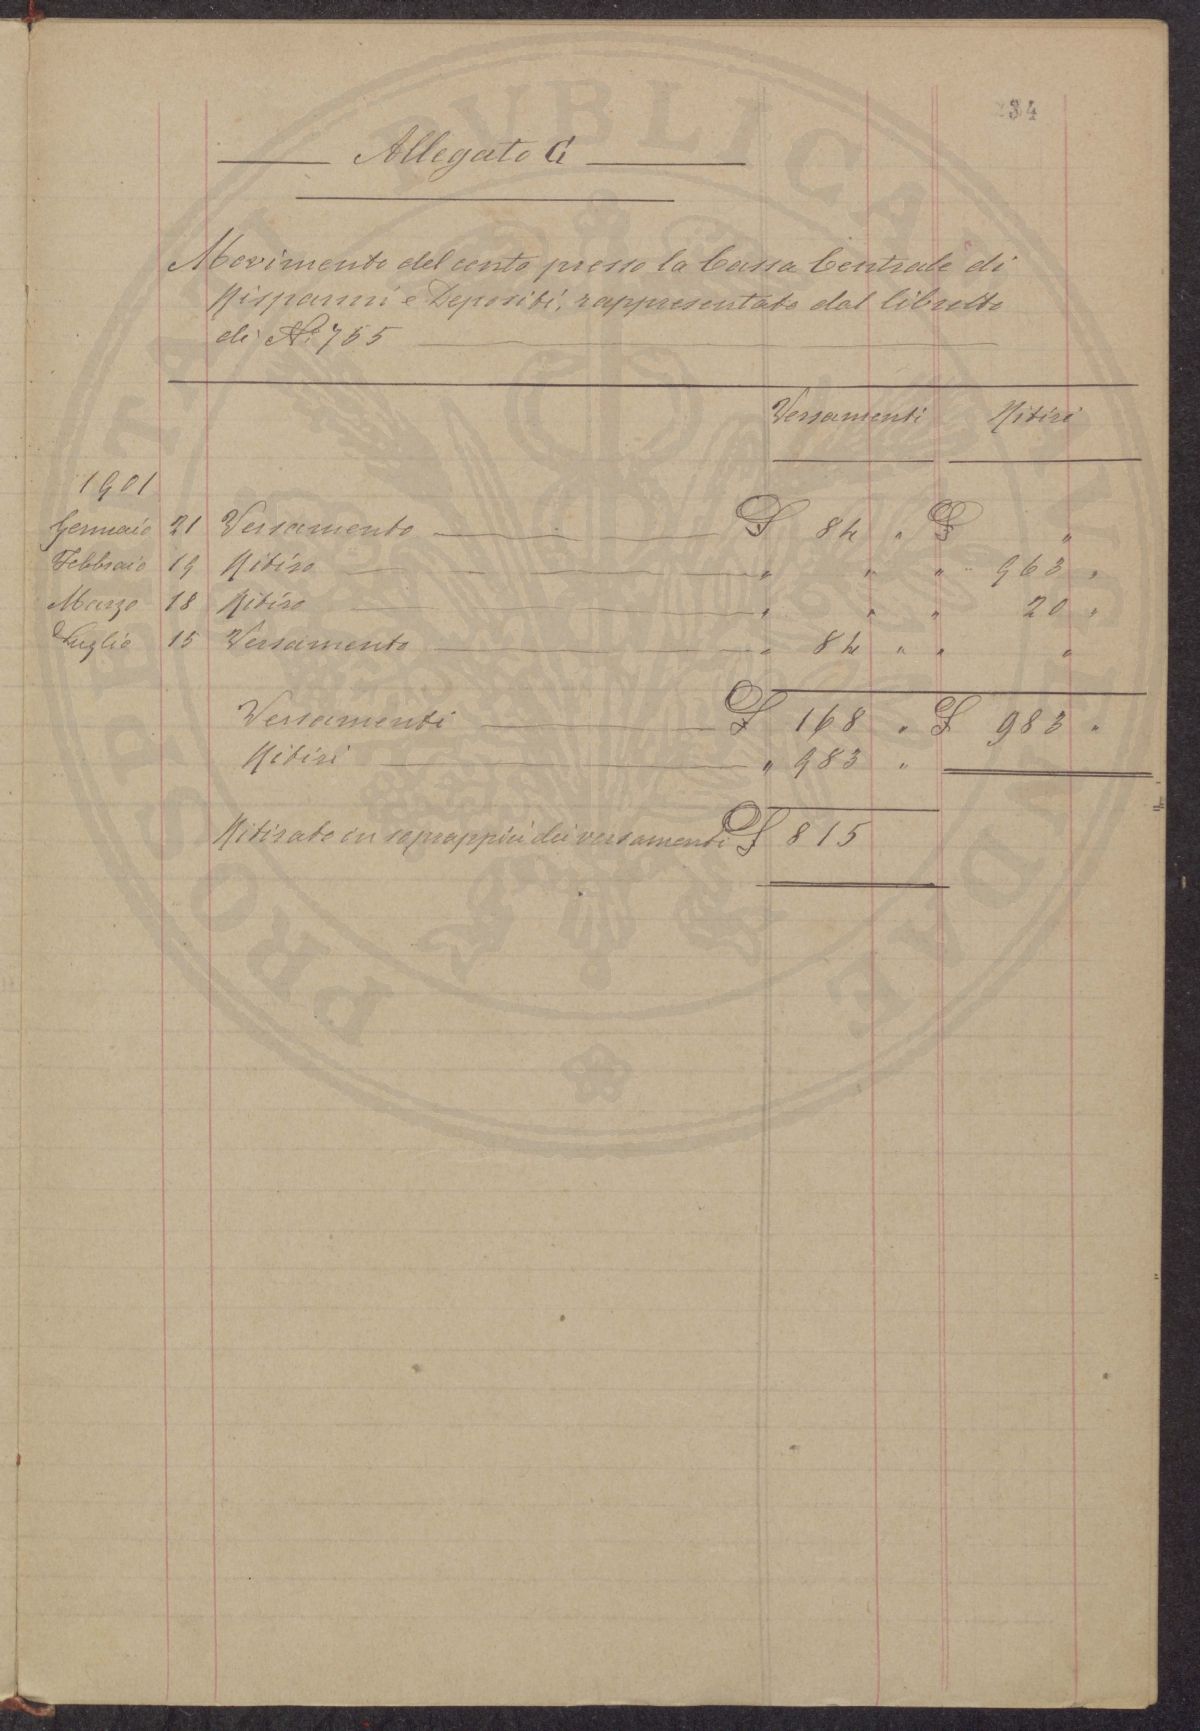 234
Allegato G
Movimento del conto presso la Cassa Centrale di
Risparmi e Depositi, rappresentato dal libretto
di No. 755
Versamenti Ritiri
1901
Gennaio 21 Versamento £ 84 " £ "
Febbraio 19 Ritiro " " " 963 "
Marzo 18 Ritiro " " " 20 "
Luglio 15 Versamento " 84 " " "
Versamenti £ 168 " £ 983 "
Ritiri " 983 "
Ritirato in soprappiù dei versamenti £ 815
PROSPERITATI PUBLICAE AUGENDAE